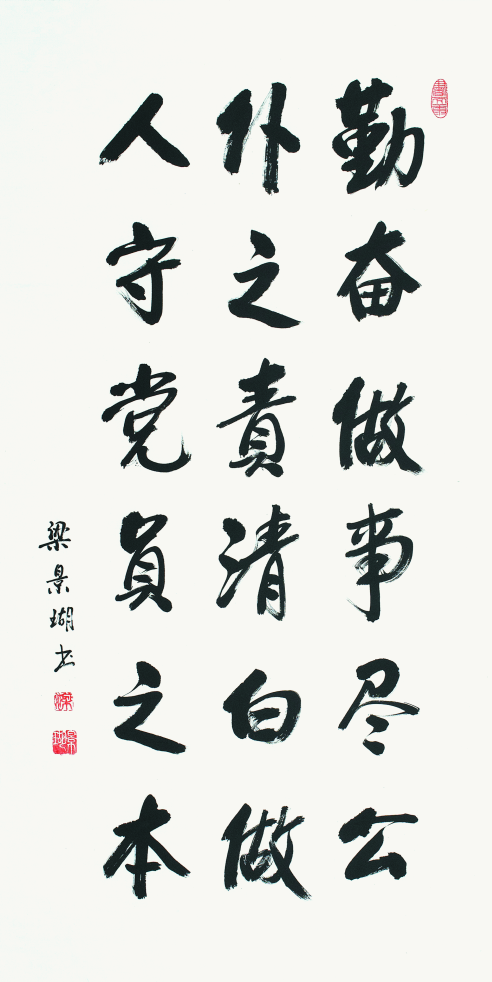 勤奋做事尽公
仆之责清白做
人守党员之本
梁景瑚书